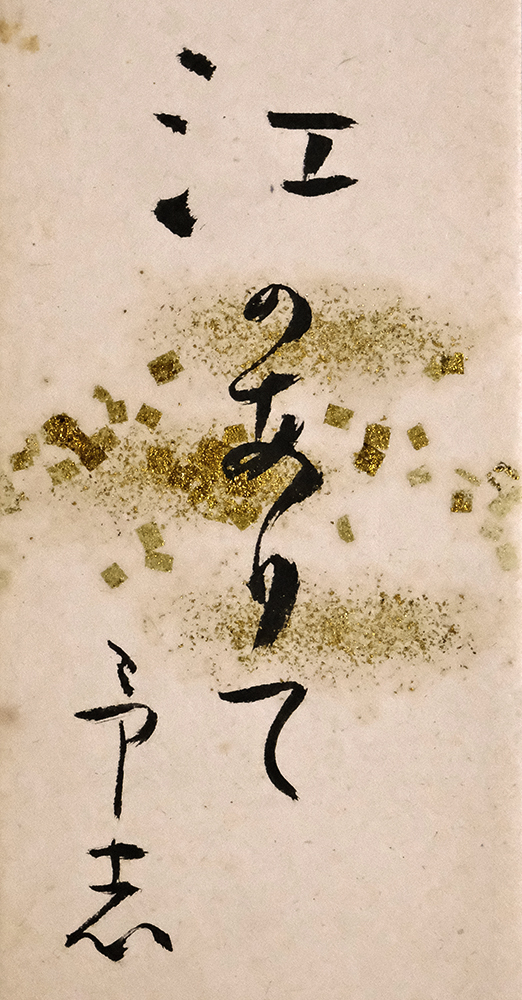 江のありて
予志